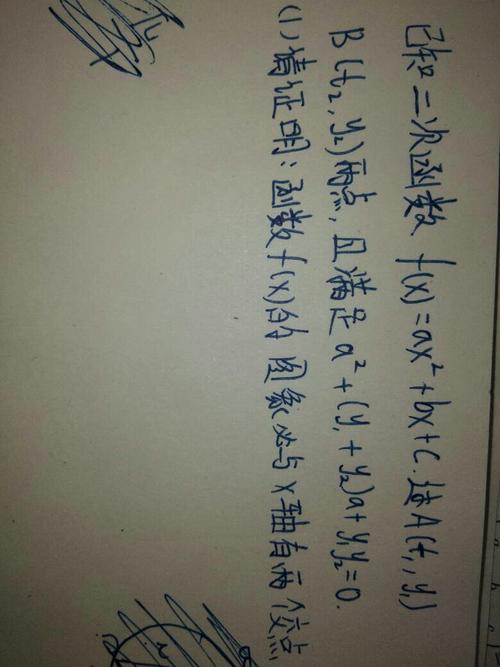 已知二次函数 f(x)=ax²+bx+c.过A(t₁,y₁)
B(t₂,y₂)两点,且满足a²+(y₁+y₂)a+y₁y₂=0.
(1)请证明:函数f(x)的图象必与x轴有两个交点